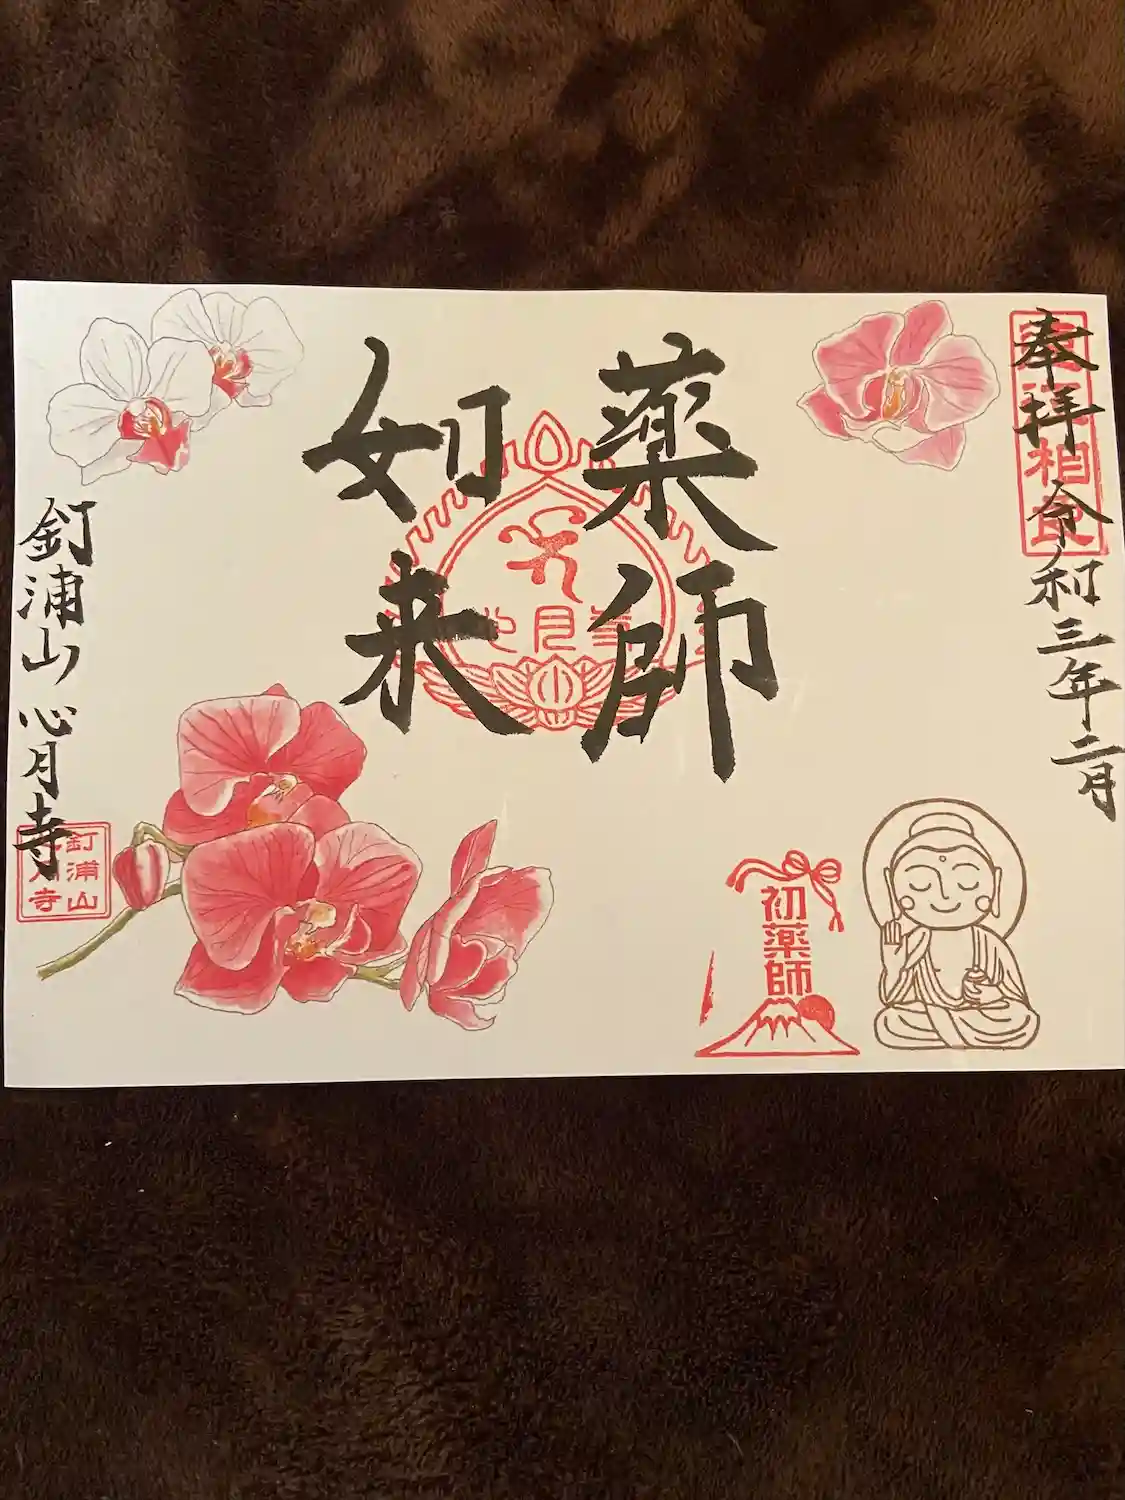 奉拝 令和三年二月
薬師
如来
初薬師
釘浦山 心月寺
釘浦山